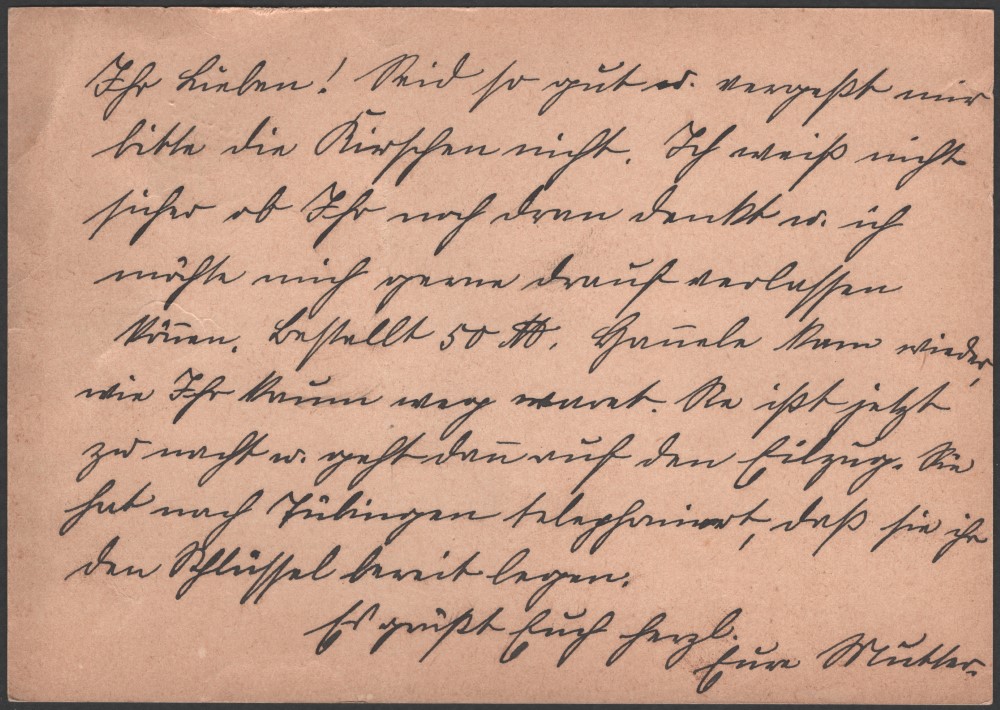 Ihr Lieben! Seid so gut u. vergeßt mir
bitte die Kirschen nicht. Ich weiß nicht
sicher ob Ihr noch dran denkt u. ich
möchte mich gerne drauf verlassen
können. Bestellt 50 ℔. Hannele kam wieder,
wie Ihr kaum weg waret. Sie ißt jetzt
zu nacht u. geht dann auf den Eilzug. Sie
hat nach Tübingen telephoniert, daß sie ihr
den Schlüssel bereit legen.
Es grüßt Euch herzl.
Eure Mutter.